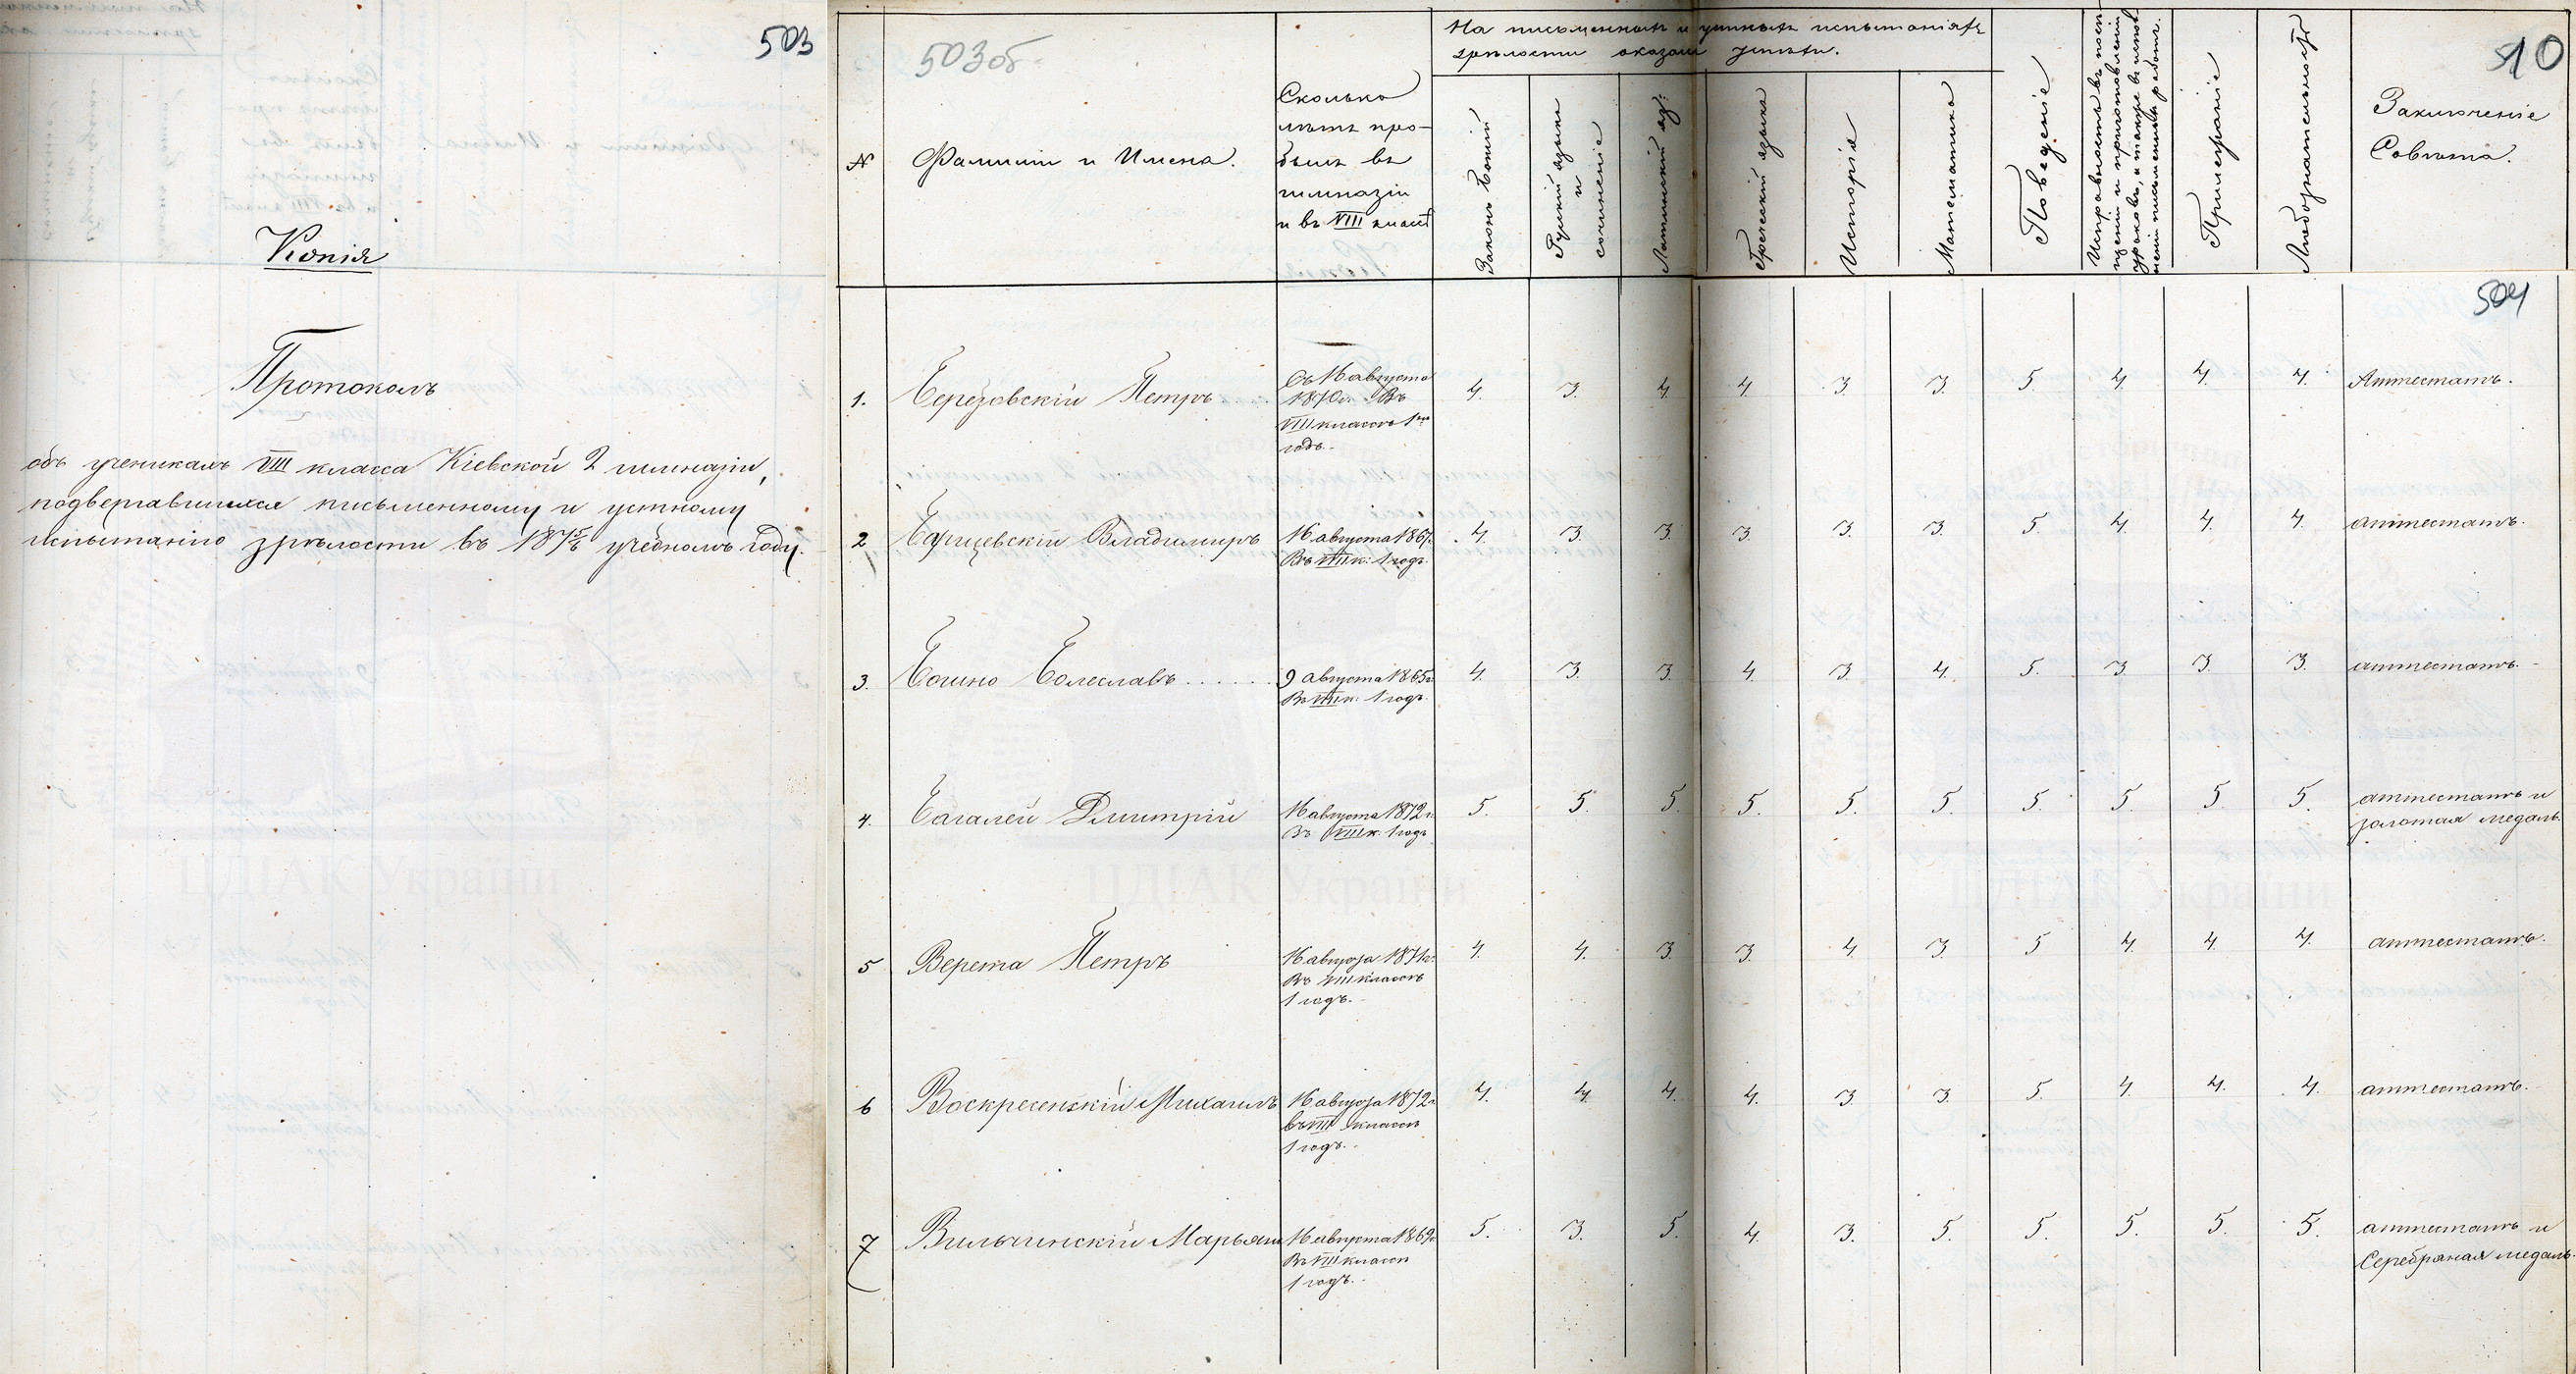 503
Копія
Протоколъ
объ ученикахъ VIII класса Кіевской 2 гимназіи,
подвергавшихся письменному и устному
испытанію зрѣлости въ 1875/6 учебномъ году.
503об
510
504
№
Фамиліи и Имена.
Сколько
лѣтъ про-
былъ въ
гимназіи
и въ VIII классѣ
На письменныхъ и устныхъ испытаніяхъ
зрѣлости оказали успѣхи.
Законъ Божій
Русскій языкъ
и
сочиненіе
Латинскій яз:
Греческій языкъ
Исторія
Математика
Поведеніе
Исправность въ посѣ-
щеніи и приготовленіи
уроковъ, а также въ испол-
неніи письменныхъ работъ.
Прилежаніе
Любознательность
Заключеніе
Совѣта.
1. Березовскій Петръ
Съ 16 августа
1870г. Въ
VIII классѣ 1
годъ.
4. 3. 4. 4. 3. 3. 5 4. 4. 4. Аттестатъ.
2 Владимиръ
16 августа 1867.
Въ VIII к: 1 годъ.
4. 3. 3. 3. 3. 3. 5. 4. 4. 4. аттестатъ.
3. Болеславъ......
9 августа 1865г.
Въ VIII к. 1 годъ.
4. 3. 3. 4. 3. 4. 5. 3. 3. 3. аттестатъ.
4. Багалей Дмитрій
16 августа 1872г.
Въ VIII к. 1 годъ
5. 5. 5. 5. 5. 5. 5. 5. 5. 5. аттестатъ и
золотая медаль.
5 Верета Петръ
16 августа 1871г.
Въ VIII классѣ
1 годъ.
4. 4. 3. 3. 4. 3. 5 4. 4. 4. аттестатъ.
6 Воскресенскій Михаилъ
16 августа 1872г.
въ VIII классѣ
1 годъ.
4. 4. 4. 4. 3. 3. 5. 4. 4. 4. аттестатъ.
7 Вильчинскій Марьянъ
16 августа 1869г.
Въ VIII классѣ
1 годъ.
5. 3. 5. 4. 3. 5. 5. 5. 5. 5. аттестатъ и
Серебряная медаль.
ЦДІАК України
ЦДІАК України
ЦДІАК України